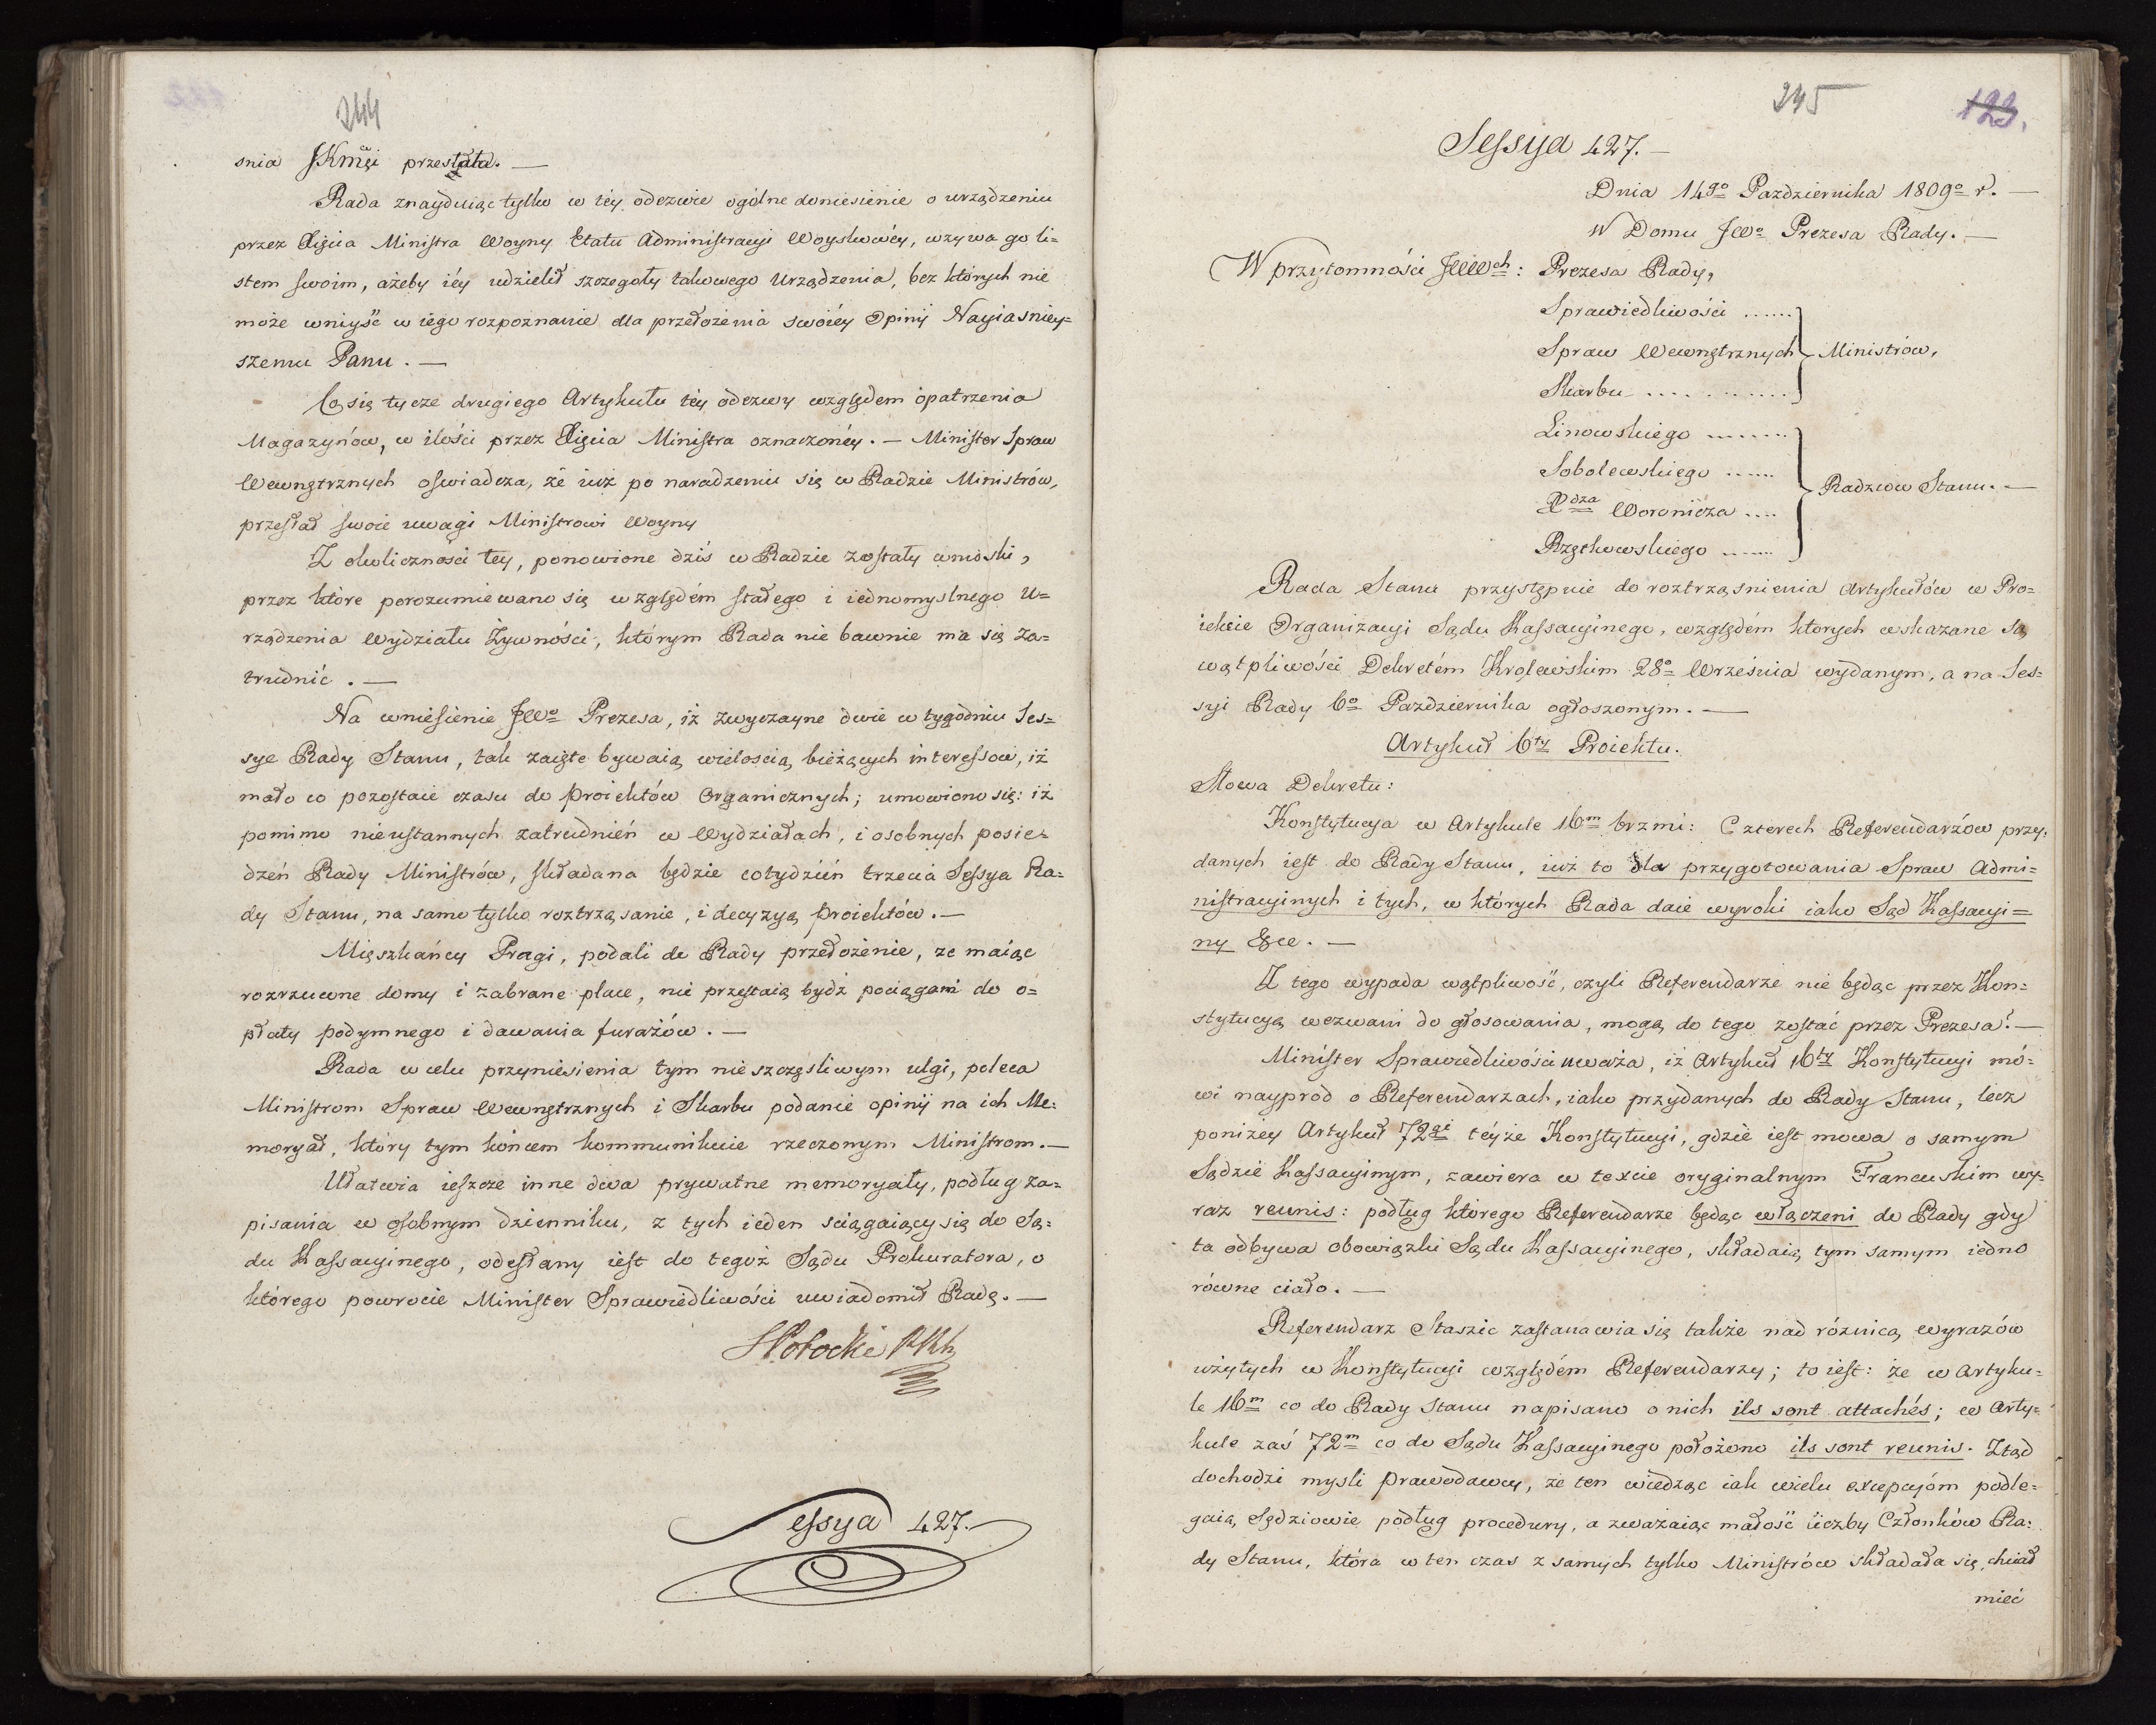 244
snia JKmci przesłała. —
Rada znayduiąc tylko w tey odezwie ogólne doniesienie o urządzeniu
przez Xięcia Ministra Woyny Etatu Administracyi Woyskowéy, wzywa go li=
stem swoim, ażeby iéy udzielił szczegoły takowego urządzenia, bez których nie
może wniyść w iego rozpoznanie dla przełożenia swoiéy Opinij Nayiasniey=
szemu Panu. —
Co się tycze drugiego Artykułu tey odezwy względem opatrzenia
Magazynów, w ilości przez Xięcia Ministra oznaczonéy. — Minister Spraw
Wewnętrznych oswiadcza, że iuż po naradzeniu się w Radzie Ministrów,
przesłał swoie uwagi Ministrowi Woyny
Z okoliczności tey, ponowione dziś w Radzie zostały wnioski,
przez które porozumiewano się względém stałego i iednomyslnego U=
rządzenia Wydziału Żywności, którym Rada nie bawnie ma się za=
trudnić. —
Na wniesienie JWo Prezesa, iż zwyczayne dwie w tygodniu Ses=
sye Rady Stanu, tak zaięte bywaią wielością bieżących interessow, iż
mało co pozostaie czasu do Proiektów Organicznych; umowiono się: iż
pomimo nieustannych zatrudnień w Wydziałach, i osobnych posie=
dzeń Rady Ministrów, składana będzie cotydzień trzecia Sessya Ra=
dy Stanu, na samo tylko roztrząsanie, i decyzyą Proiektów. —
Mieszkańcy Pragi, podali do Rady przełożenie, ze maiąc
rozrzucone domy i zabrane place, nie przestaią bydź pociągani do o=
płaty podymnego i dawania furażów. —
Rada w celu przyniesienia tym nieszczęsliwym ulgi, poleca
Ministrom Spraw Wewnętrznych i Skarbu podanie opinij na ich Me=
moryał, który tym końcem kommunikuie rzeczonym Ministrom. —
Ułatwia ieszcze inne dwa prywatne memoryały, podług za=
pisania w osobnym dzienniku, z tych ieden sciągaiący się do Są=
du Kassacyinego, odesłany iest do tegoż Sądu Prokuratora, o
którego powrocie Minister Sprawiedliwości uwiadomił Radę. —
SPotocki
Sessya 427.
245
123.
Sessya 427. —
Dnia 14go Pazdziernika 1809o r. —
W Domu JWo Prezesa Rady. —
W przytomności JWWch: Prezesa Rady,
Sprawiedliwości ......
Spraw Wewnętrznych Ministrów,
Skarbu ............
Linowskiego ........
Sobolewskiego ......
Xdza Woronicza .... Radzców Stanu. —
Rzętkowskiego .......
Rada Stanu przystępuie do roztrząsnienia Artykułów w Pro=
iekcie Organizacyi Sądu Kassacyinego, względém ktorych wskazane są
wątpliwości Dekretém Krolewskim 28o Września wydanym, a na Ses=
syi Rady 6o Pazdziernika ogłoszonym. —
Artykuł 6ty Proiektu.
Słowa Dekretu:
Konstytucya w Artykule 16m brzmi: Czterech Referendarzów przy=
danych iest do Rady Stanu, iuż to dla przygotowania Spraw Admi=
nistracyinych i tych, w których Rada daie wyroki iako Sąd Kassacyi=
ny &ce. —
Z tego wypada wątpliwość, czyli Referendarze nie będąc przez Kon=
stytucyą wezwani do głosowania, mogą do tego zostać przez Prezesa? —
Minister Sprawiedliwości uważa, iż Artykuł 16ty Konstytucyi mó=
wi nayprod o Referendarzach, iako przydanych do Rady Stanu, lecz
poniżey Artykuł 72gi teyże Konstytucyi, gdzie iest mowa o samym
Sądzie Kassacyinym, zawiera w texcie oryginalnym Francuskim wy=
raz reunis: podług którego Referendarze będąc włączeni do Rady gdy
ta odbywa obowiązki Sądu Kassacyinego, składaią tym samym iedno
równe ciało. —
Referendarz Staszic zastanawia się także nad róznicą wyrazów
użytych w Konstytucyi względém Referendarzy; to iest: że w Artyku=
le 16m co do Rady Stanu napisano o nich ils sont attachés; w Arty=
kule zaś 72m co do Sądu Kassacyinego położono ils sont reunis. Ztąd
dochodzi mysli Prawodawcy, że ten wiedząc iak wielu excepcyóm podle=
gaią Sędziowie podług procedury, a zważaiąc małość liczby Członków Ra=
dy Stanu, która w ten czas z samych tylko Ministrów składała się, chciał
mieć